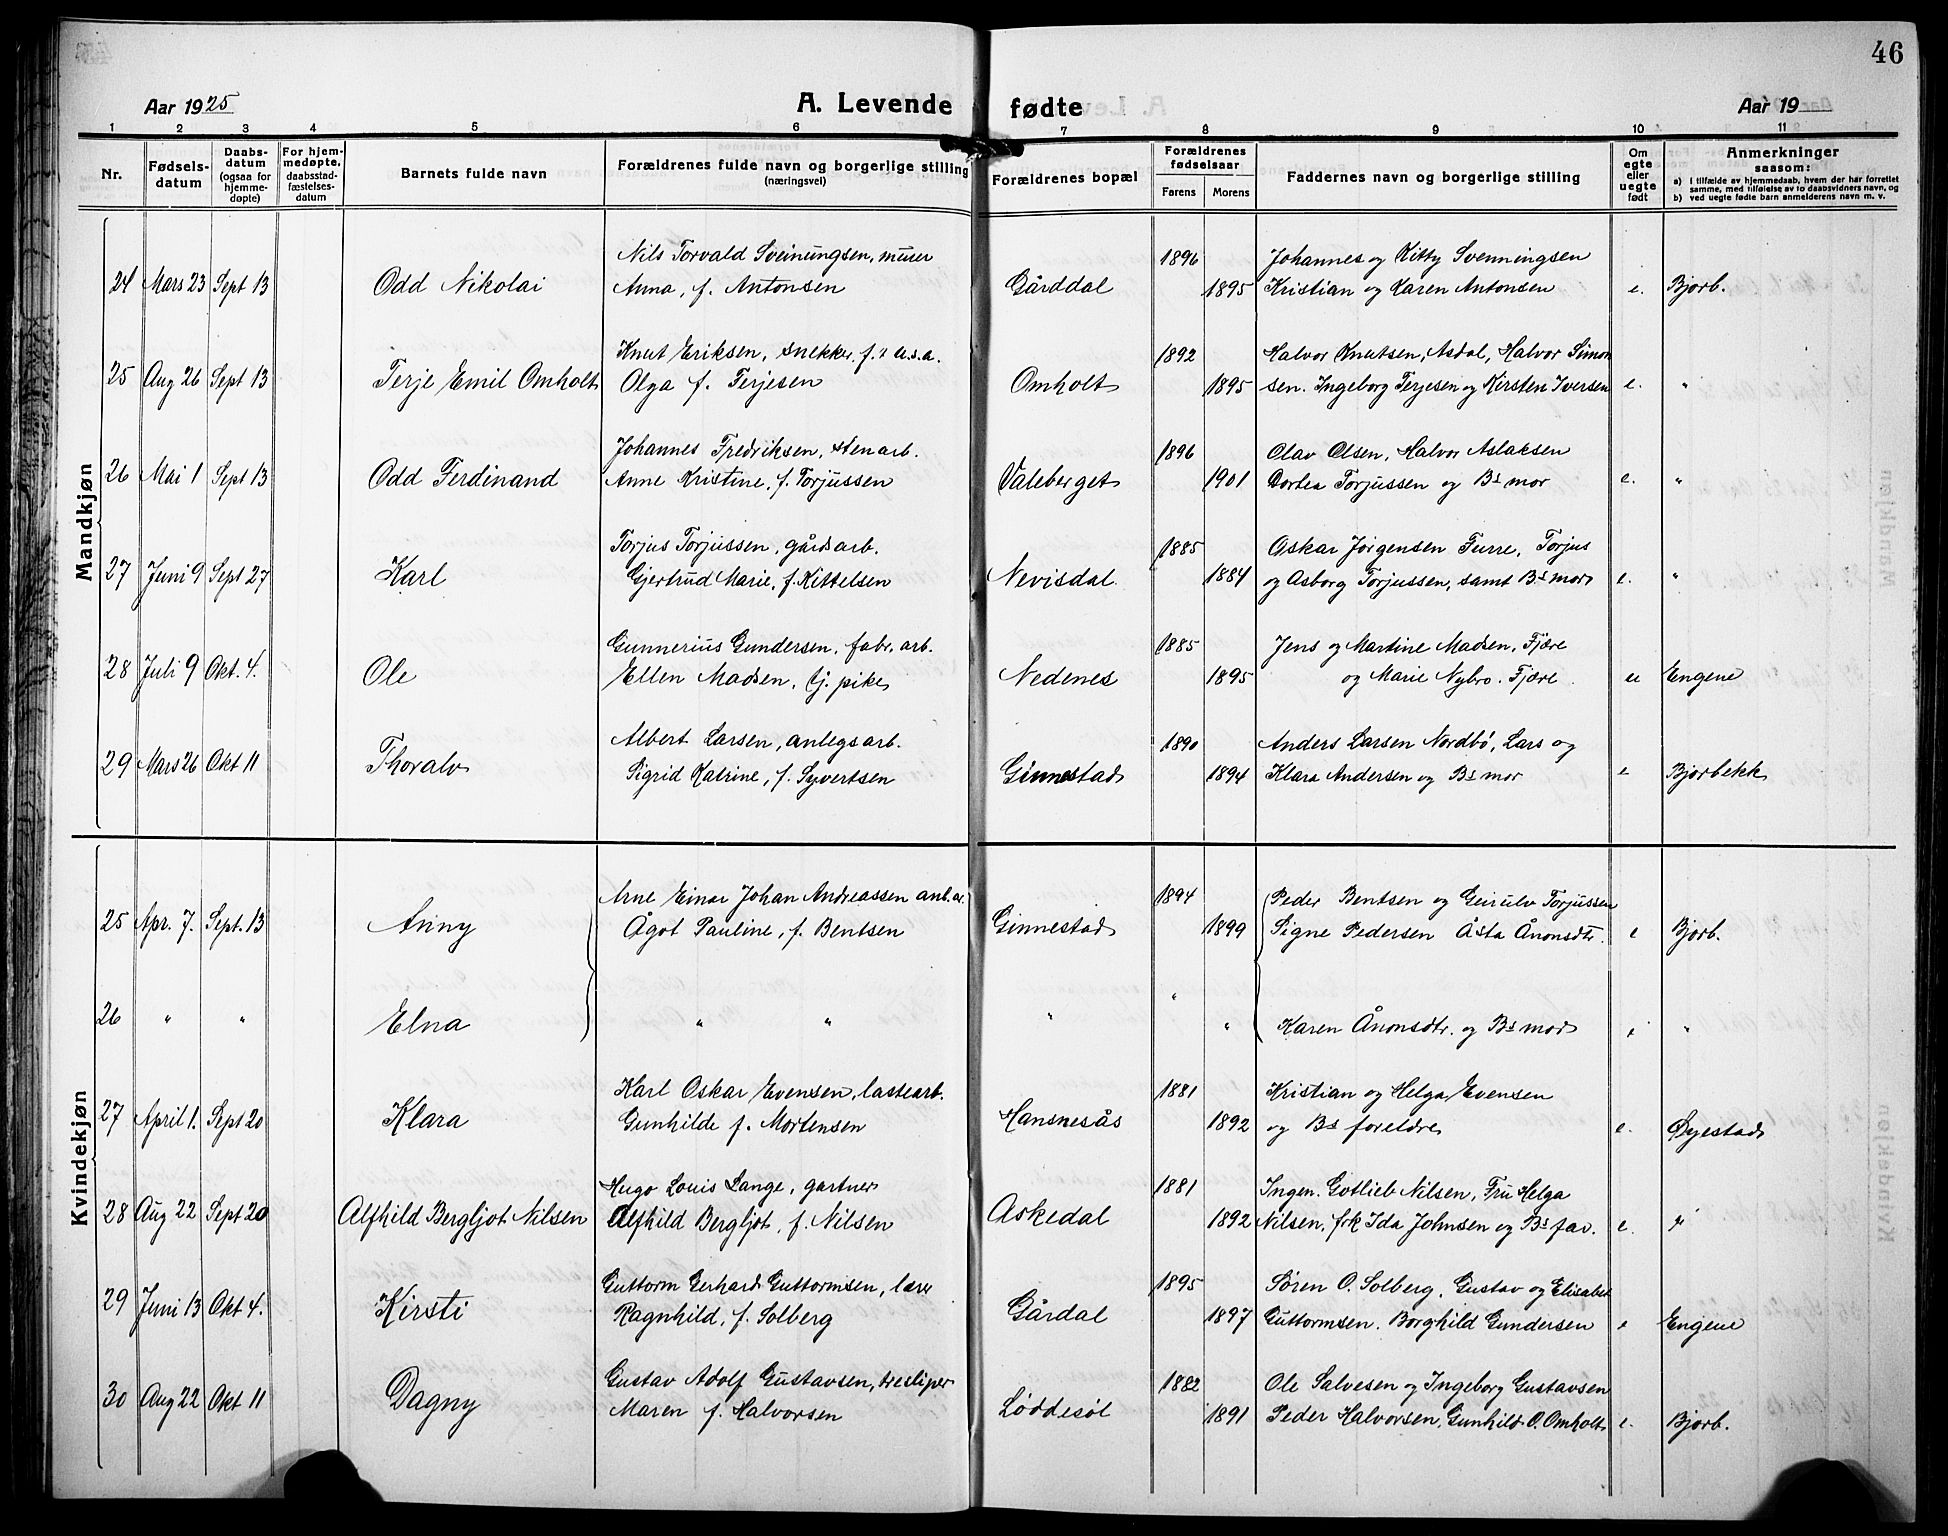 46
Aar 1925
A. Levende fødte
Aar 19
1 2 3 4 5 6 7 8 9 10 11
Nr.
Fødsels-
datum
Daabs-
datum
(ogsaa for
hjemme-
døpte)
For hjem-
medøpte,
daabsstad-
fæstelses-
datum
Barnets fulde navn
Forældrenes fulde navn og borgerlige stilling
(næringsvei)
Forældrenes bopæl
Forældrenes
fødselsaar
Farens Morens
Faddernes navn og borgerlige stilling
Om
egte
eller
uegte
født
Anmerkninger
saasom:
a) i tilfælde av hjemmedaab, hvem der har forrettet
samme, med tilføielse av to daabsvidners navn, og
b) ved uegte fødte barn anmelderens navn m. v.
Mandkjøn
Nils Torvald Sveinungsen, murer 1896 Johannes og Kitty Svenningsen
24 Mars 23 Sept 13 Odd Nikolai Anna, f. Antonsen Gårddal 1895 Kristian og Karen Antonsen e. Bjorb.
Knut Eriksen, snekker, f. i u.s.a. 1892 Halvor Knutsen, Asdal, Halvor Simon
25 Aug 26 Sept 13 Terje Emil Omholt Olga f. Terjesen Omholt 1895 sen. Ingeborg Terjesen og Kirsten Iversen e. "
Johannes Fredriksen, stenarb. 1896 Olav Olsen, Halvor Aslaksen
26 Mai 1 Sept 13 Odd Ferdinand Anne Kristine, f. Torjussen Valeberget 1901 Dortea Torjussen og Bs mor e. "
Torjus Torjussen, gårdsarb. 1885 Oskar Jørgensen Furre, Torjus
27 Juni 9 Sept 27 Karl Gjertrud Marie, f. Kittelsen Nevisdal 1884 og Asborg Torjussen, samt Bs mor e. "
Gunnerius Gundersen, fabr. arb. 1885 Jens og Martine Madsen, Fjære
28 Juli 9 Okt. 4. Ole Ellen Madsen, tj. pike Nedenes 1895 og Marie Nybro. Fjære ue Engene
Albert Larsen, anlegsarb. 1890 Anders Larsen Nordbø, Lars og
29 Mars 26 Okt 11 Thoralv Sigrid Katrine, f. Syvertsen Ginnestad 1894 Klara Andersen og Bs mor e Bjorbekk
Kvindekjøn
Arne Einar Johan Andreassen anl. ar. 1894 Peder Bentsen og Geirulv Torjussen
25 Apr. 7. Sept. 13 Anny Ågot Pauline, f. Bentsen Ginnestad 1899 Signe Pedersen Åsta Ånonsdtr. e Bjorb.
26 " " Elna " " " " " Karen Ånonsdtr. og Bs mor e "
Karl Oskar Evensen, lastearb. 1881 Kristian og Helga Evensen
27 April 1. Sept 20 Klara Gunhilde f. Mortensen Hansnesås 1892 og Bs foreldre e. Øyestad
Hugo Louis Lange, gartner 1881 Ingen. Gotlieb Nilsen, Fru Helga
28 Aug 22 Sept 20 Alfhild Bergljot Nilsen Alfhild Bergljot, f. Nilsen Askedal 1892 Nilsen, frk Ida Johnsen og Bs far. e. "
Guttorm Gerhard Guttormsen, lærer 1895 Søren O. Solberg, Gustav og Elisabet
29 Juni 13 Okt 4. Kirsti Ragnhild, f. Solberg Gårdal 1897 Guttormsen. Borghild Gundersen e Engene
Gustav Adolf Gustavsen, tresliper 1882 Ole Salvesen og Ingeborg Gustavsen
30 Aug 22 Okt 11 Dagny Maren f. Halvorsen Løddesøl 1891 Peder Halvorsen, Gunhild O. Omholt e. Bjorb.